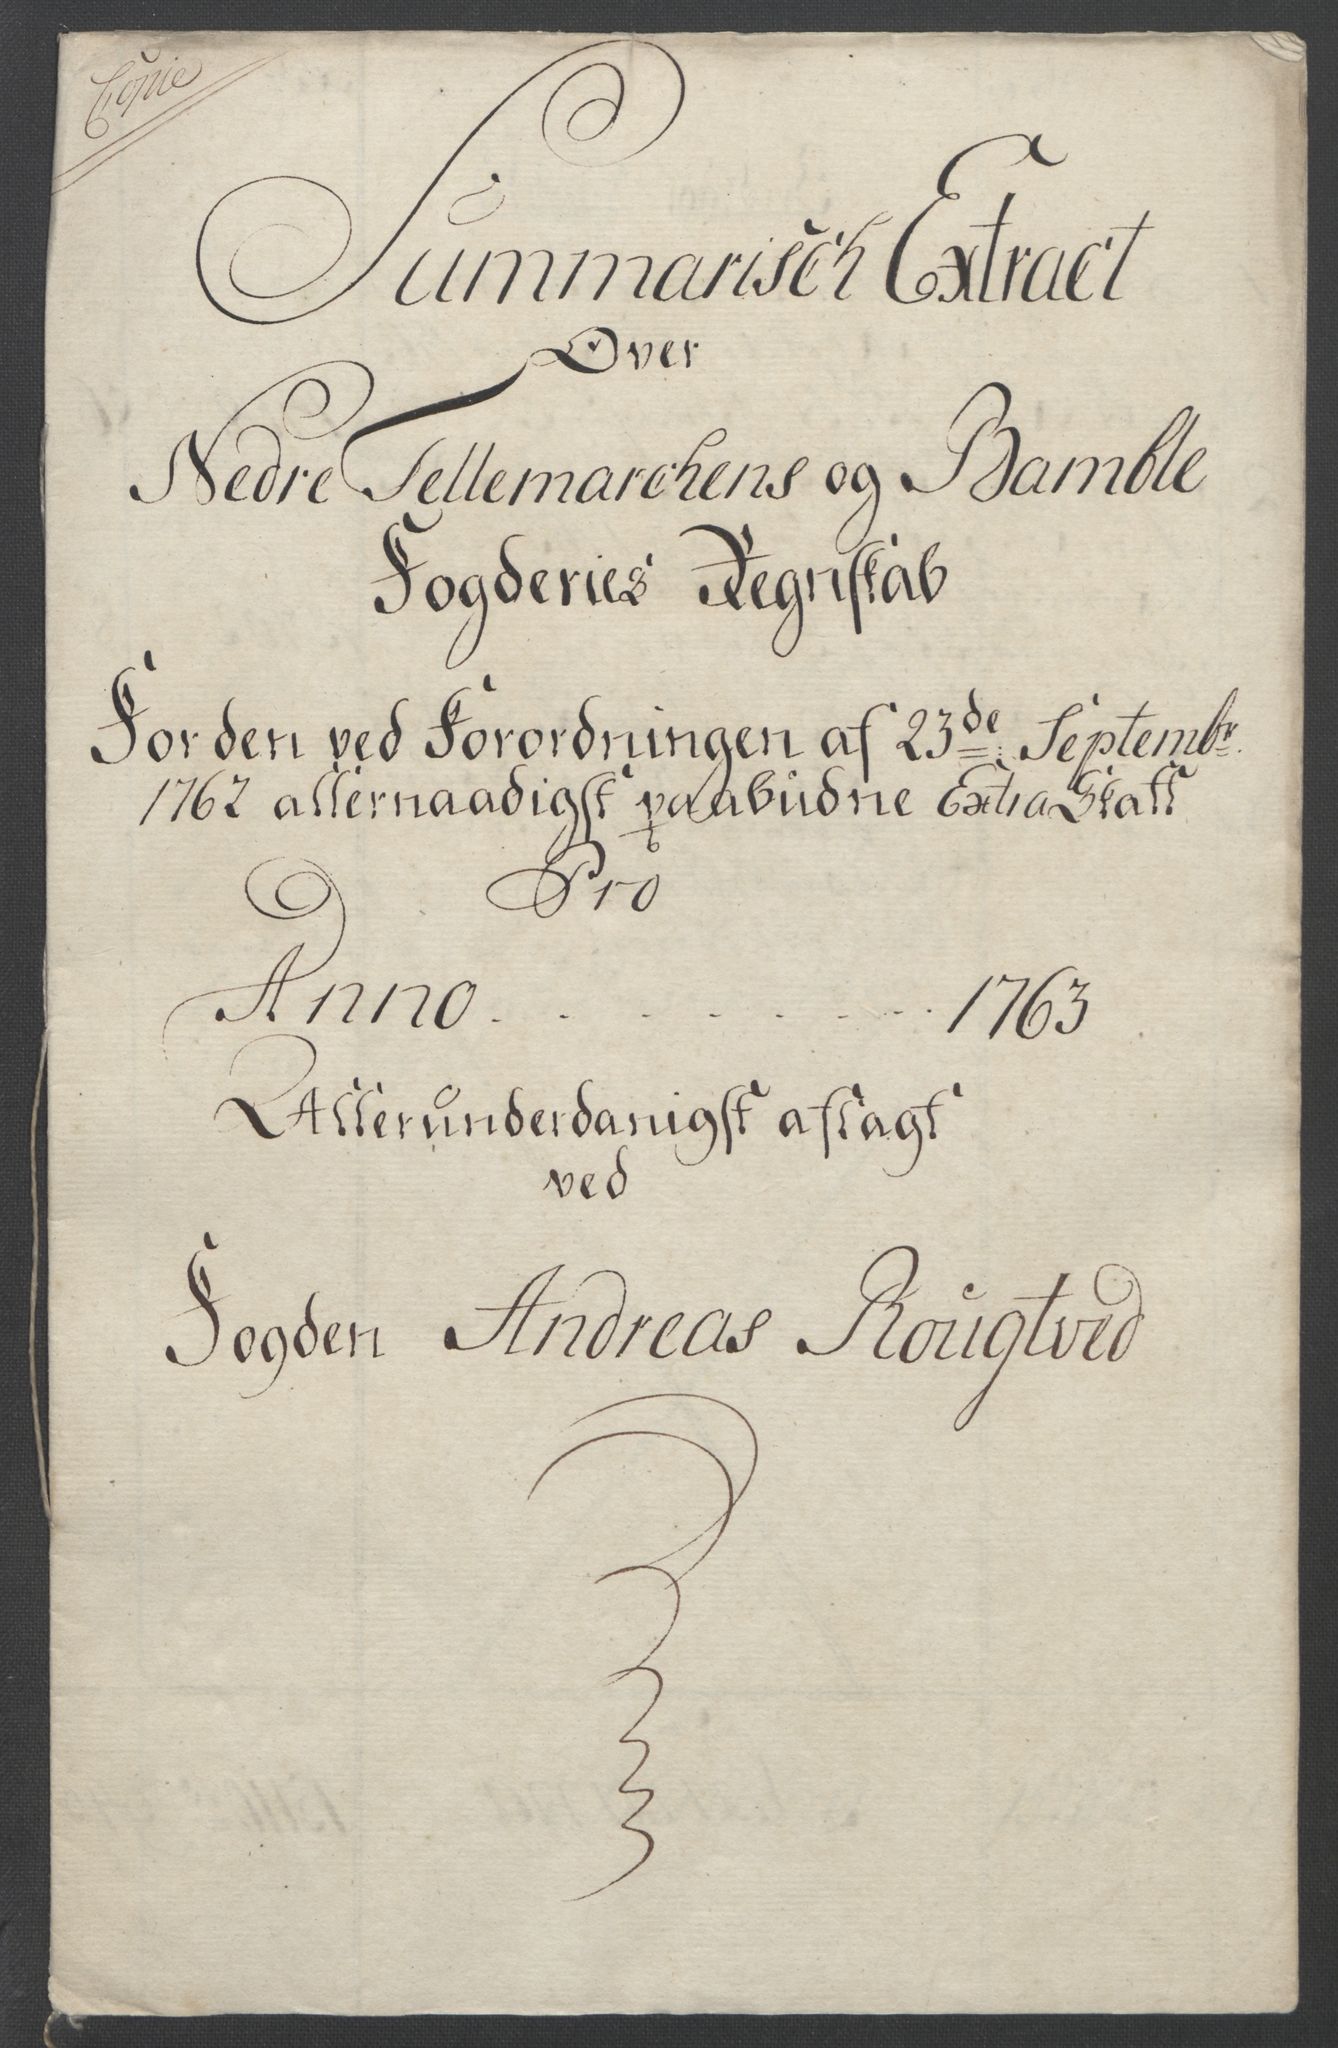 Copie
Summarisch Extract
Over
Nedre Tellemarchens og Bamble
Fogderies Regnskab
For den ved Forordningen af 23de Septembr.
1762 allernaadigst paabudne Extra Skatt
Pro
Anno . . . . . . . . 1763
Allerunderdanigst aflagt
ved
Fogden Andreas Rougtved